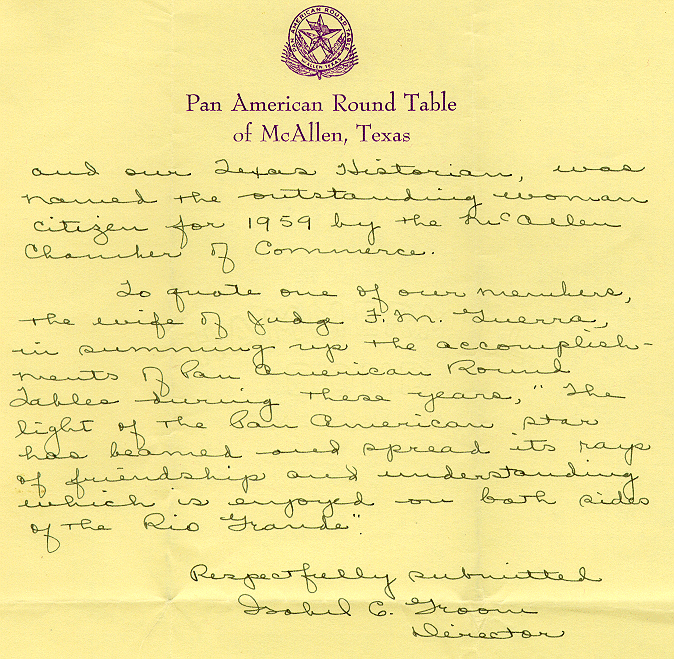 PAN AMERICAN ROUND TABLE
McALLEN, TEXAS
Pan American Round Table
of McAllen, Texas
and our Texas Historian, was
named the outstanding woman
citizen for 1959 by the McAllen
Chamber of Commerce.
To quote one of our members,
the wife of Judge F. M. Guerra,
in summing up the accomplish-
ments of Pan American Round
Tables during these years, "The
light of the Pan American star
has beamed and spread its rays
of friendship and understanding
which is enjoyed on both sides
of the Rio Grande".
Respectfully submitted
Isabel C. Groom
Director